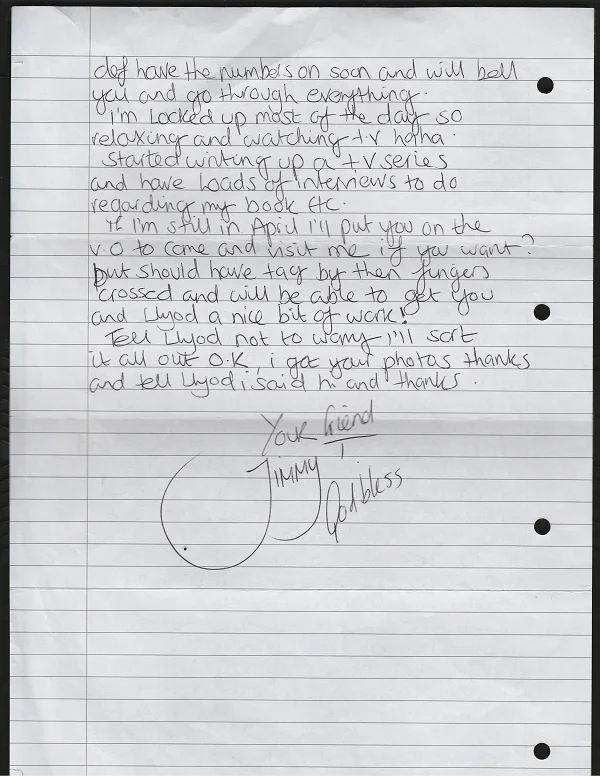 def have the numbers on soon and will bell
you and go through everything.
I'm Locked up most of the day so
relaxing and watching t.v haha.
Started writing up a t v series
and have Loads of interviews to do
regarding my book Etc.
If I'm still in April I'll put you on the
V.O to come and visit me if you want?
but should have tag by then fingers
crossed and will be able to get you
and Llyod a nice bit of work!
Tell Llyod not to worry I'll sort
it all out O.K, i got your photos thanks
and tell Llyod, i said hi and thanks.
Your friend
Jimmy
God bless